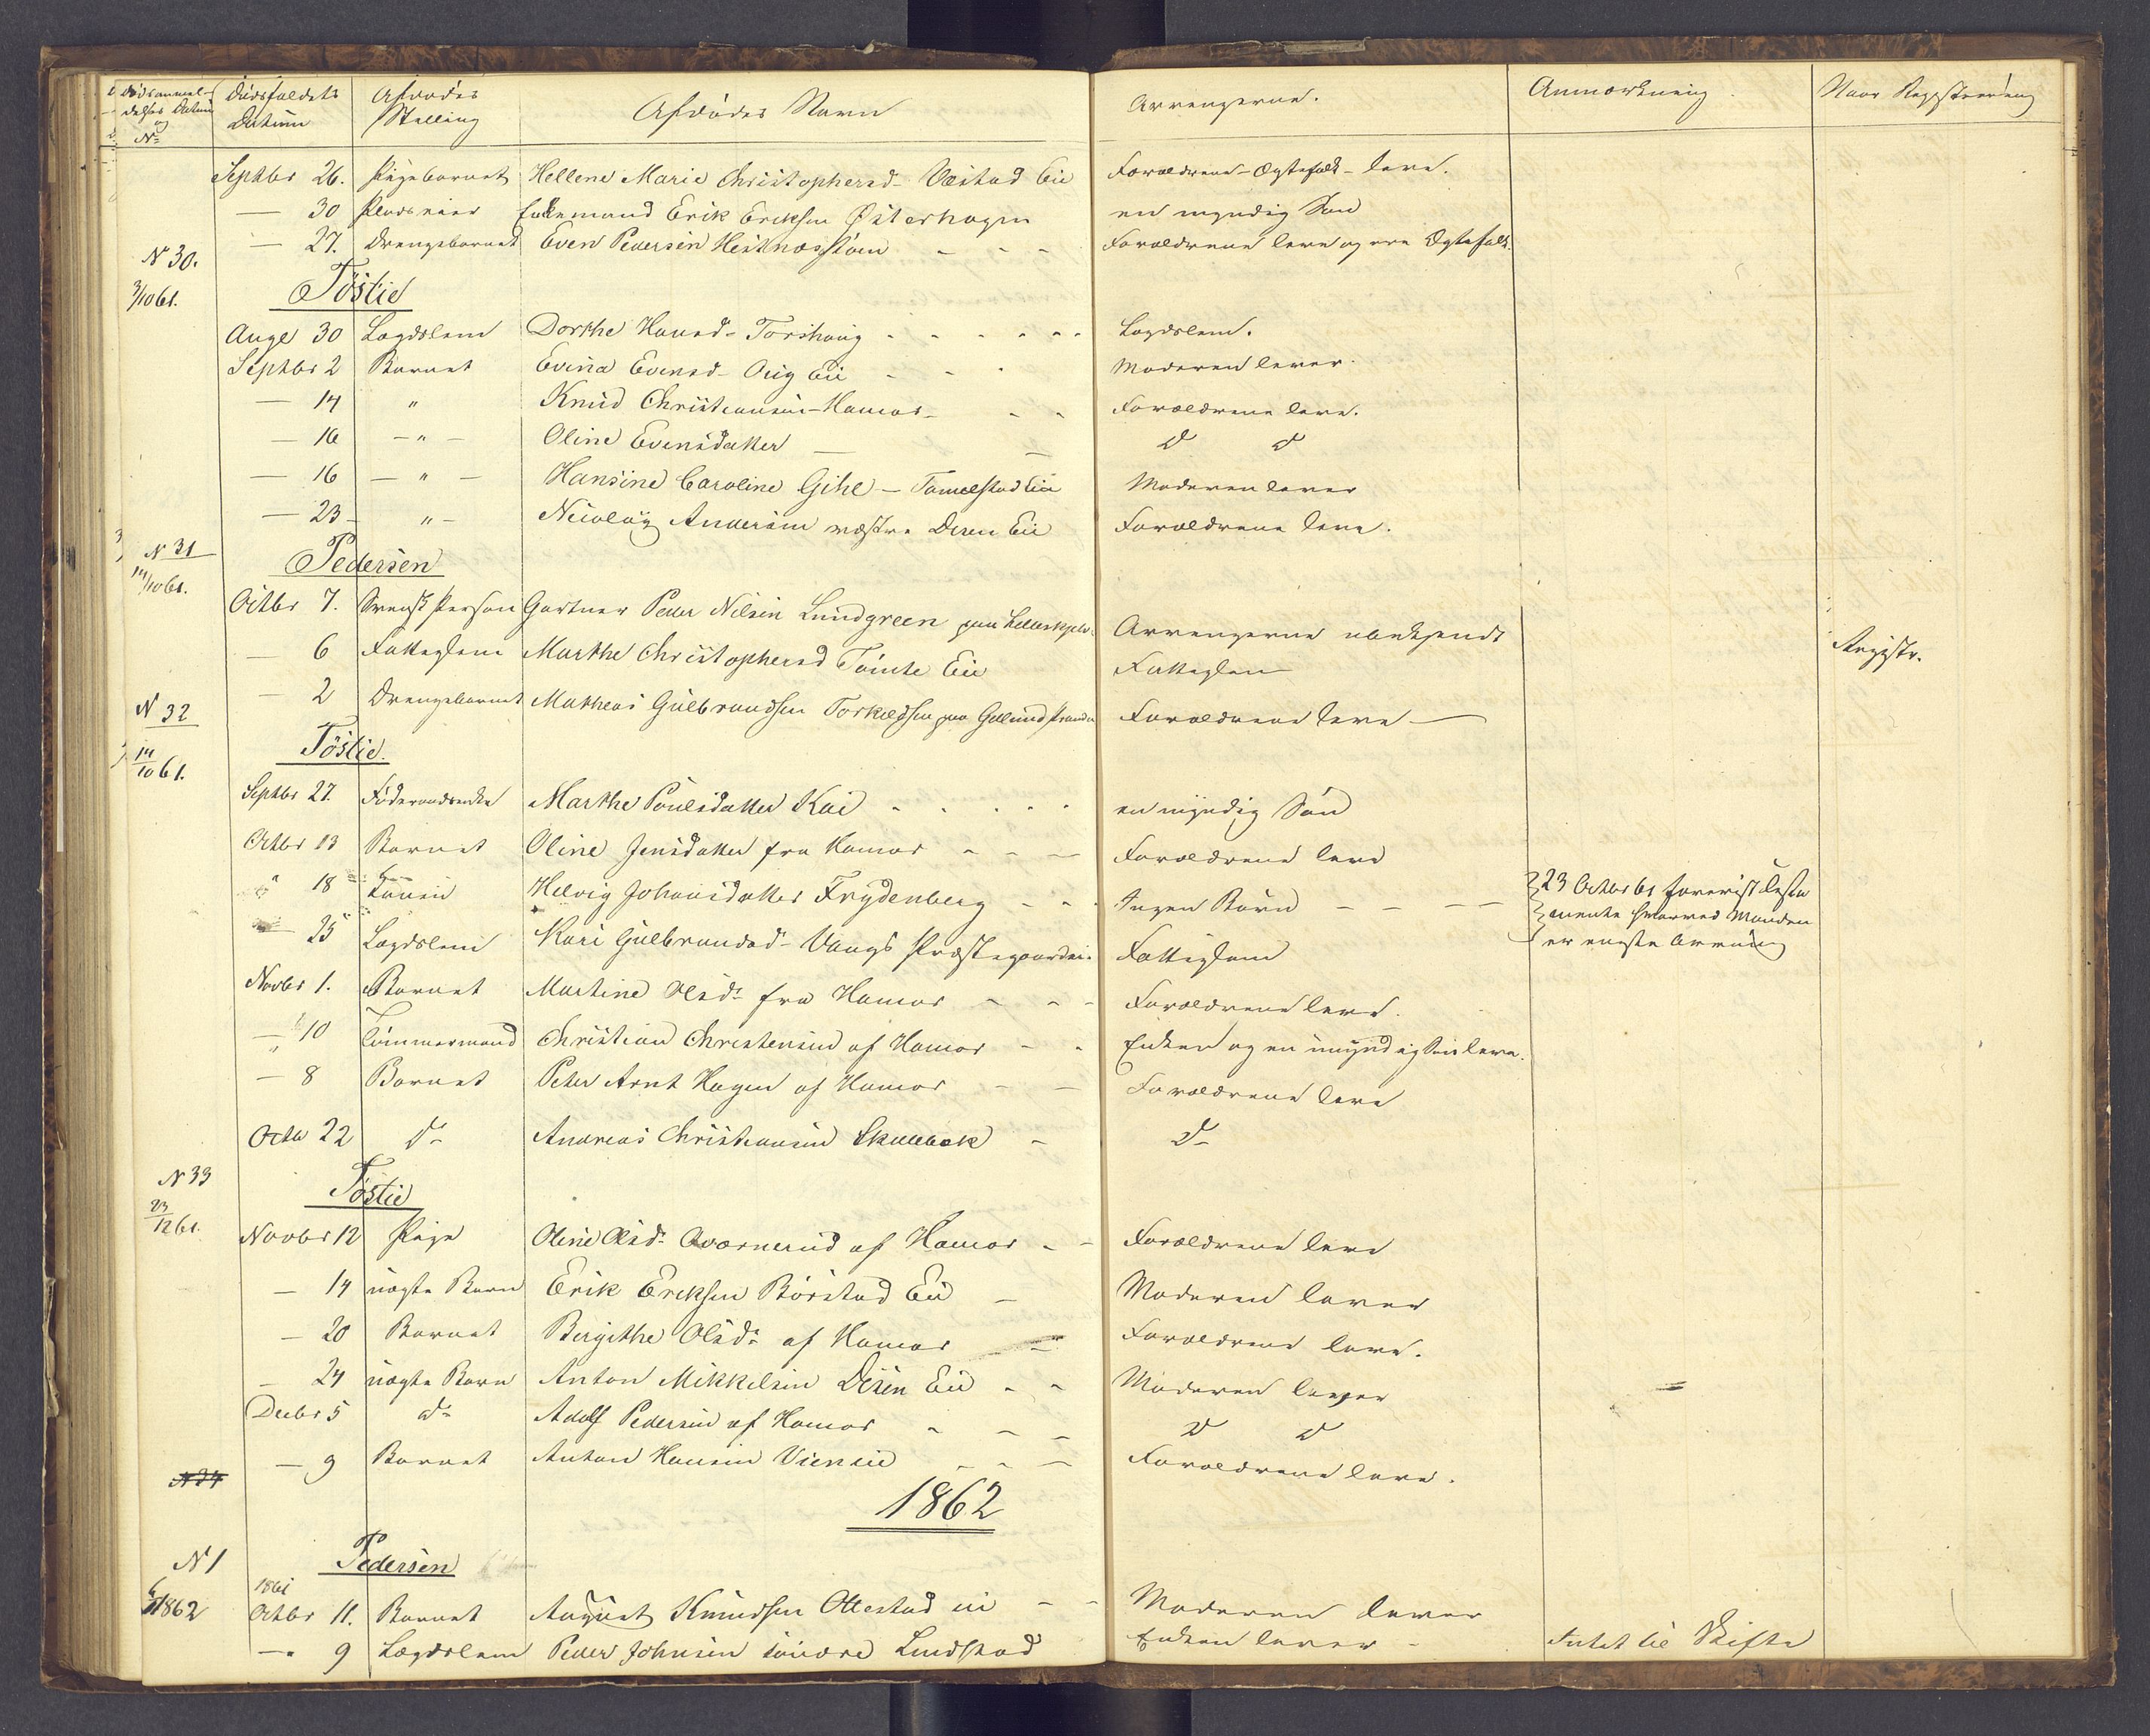 Dødsanmel- Dødsfaldets Afdødes Afdødes Navn Arvingerne. Anmærkning Naar Registrering
delses Datum Datum Stilling
og
No
Septbr 26. Pigebarnet Hellene Marie Christophersd. Vestad Eie Forældrene - Ægtefolk - leve.
— 30 Pladseier Enkemand Erik Eriksen Østerhagen en myndig Søn
— 27. Drengebarnet Even Pedersen Hestnæsstuen - - - Forældrene leve og ere Ægtefolk.
N 30.
3/10 61. Töstie
Augt 30 Lægdslem Dorthe Hansd. Torshoug - - - - - Lægdslem.
Septbr 2 Barnet Evina Evensd. Eie - - - Moderen lever.
— 14 " Knud Christiansen - Hamar - - - Forældrene leve.
— 16 — " — Oline Evensdatter — — do do
— 16 — " — Hansine Caroline Gihl — Tommelstad Eie Moderen lever
— 23 - " - Nicolay Andersen vestre Disen Eie Forældrene leve.
N 31
14/10 61. Pedersen
Octbr 7. Svensk Person Gartner Peder Nilsen Lundgreen paa Arvingerne ubekjendt Registr.
— 6 Fatteglem Marthe Christophersd Tomte Eie Fatteglem
— 2 Drengebarnet Matheas Gulbrandsen Torkildsen paa Forældrene leve —
N 32
14/10 61. Töstie.
Septbr 27. Föderaadsenke Marthe Poulsdatter Kai - - - - - en myndig Søn
Octbr 13 Barnet Oline Jensdatter fra Hamar - - — Forældrene leve
" 18 Konen Helvig Johansdatter Frydenberg - - - Ingen Børn — — — — 23 Octbr 61 forevist Testa
mente hvorved Manden
er eneste Arving
— 25 Lægdslem Kari Gulbrandsd. Vangs Præstegaardei. Fattiglem
Novbr 1. Barnet Martine Olsdr. fra Hamar - - - Forældrene leve.
— 10 Tømmermand Christian Christensen af Hamar - - Enken og en umyndig Søn leve.
— 8 Barnet Peter Arnt Hagen af Hamar — — Forældrene leve
Octbr 22 do Andreas Christiansen Skallbæk - do
N 33
23/12 61. Töstie
Novbr 12 Pige Oline Olsdr. Qværnerud af Hamar - - Forældrene leve
— 14 uægte Barn Erik Eriksen Börstad Eie — Moderen lever
— 20 Barnet Birgithe Olsdr. af Hamar — Forældrene leve.
— 24 uægte Barn Anton Mikkelsen Disen Eie - - Moderen lever
Decbr 5 do Adolf Pedersen af Hamar - - — do do
— 9 Barnet Anton Hansen Viensen - - — Forældrene leve.
N 34
1862
N 1 Pedersen
1862 1861
Octbr 11. Barnet August Knudsen Ottestad eie - - Moderen lever
— 9 Lægdslem Peder Johnsen söndre Lundstad Enken lever - Intet til Skifte